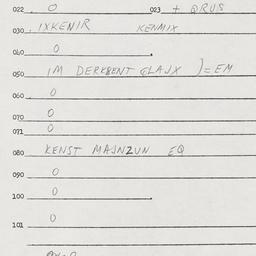 022 0 023 + QRUS
030 IXKENIR KENMIX
040 0
050 IM DERKBENT GLAJX )=EM
060 0
070 0
071 0
080 KENST MAJNZUN EQ
090 0
100 0
101 0